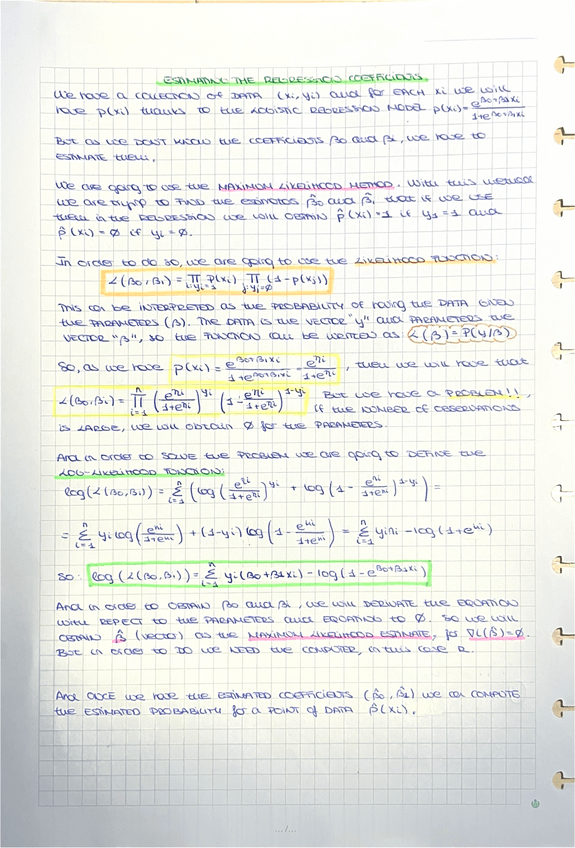 ESTIMATING THE REGRESSION COEFFICIENTS.
We have a COLLECTION of DATA (xi, yi) and for EACH xi we will
have p(xi) thanks to the LOGISTIC REGRESSION MODEL p(xi) = e^(β0+β1xi) / (1+e^(β0+β1xi))
But as we DON'T KNOW the COEFFICIENTS β0 and β1, we have to
ESTIMATE them.
We are going to use the MAXIMUM LIKELIHOOD METHOD. With this method
we are trying to FIND the ESTIMATES β̂0 and β̂1 that if we USE
them in the REGRESSION we will OBTAIN p̂(xi)=1 if yi=1 and
p̂(xi)=Ø if yi=Ø.
In order to do so, we are going to use the LIKELIHOOD FUNCTION:
L(β0, β1) = ∏_{i:yi=1} p(xi) ∏_{j:yj=Ø} (1-p(xj))
This can be INTERPRETED as the PROBABILITY of having the DATA GIVEN
the PARAMETERS (β). The DATA is the VECTOR "y" and PARAMETERS the
VECTOR "β", so the FUNCTION can be written as L(β) = P(y/β)
So, as we have p(xi) = e^(β0+β1xi) / (1+e^(β0+β1xi)) = e^(ηi) / (1+e^(ηi)), then we will have that
L(β0, β1) = ∏_{i=1}^{n} (e^(ηi) / (1+e^(ηi)))^(yi) (1 - e^(ηi) / (1+e^(ηi)))^(1-yi) But we have a PROBLEM!!,
if the NUMBER OF OBSERVATIONS
is LARGE, we will obtain Ø for the PARAMETERS.
And in order to SOLVE the PROBLEM we are going to DEFINE the
LOG-LIKELIHOOD FUNCTION:
log(L(β0, β1)) = Σ_{i=1}^{n} (log (e^(ηi) / (1+e^(ηi)))^(yi) + log (1 - e^(ηi) / (1+e^(ηi)))^(1-yi)) =
= Σ_{i=1}^{n} yi log(e^(ηi) / (1+e^(ηi))) + (1-yi) log(1 - e^(ηi) / (1+e^(ηi))) = Σ_{i=1}^{n} yiηi - log(1+e^(ηi))
So: log(L(β0, β1)) = Σ_{i=1}^{n} yi(β0+β1xi) - log(1-e^(β0+β1xi))
And in order to OBTAIN β0 and β1, we will DERIVATE the EQUATION
with REPECT to the PARAMETERS and EQUATING to Ø. So we will
OBTAIN β̂ (VECTOR) as the MAXIMUM LIKELIHOOD ESTIMATE, for ∇L(β̂)=Ø.
But in order to DO we NEED the COMPUTER, in this case R.
And ONCE we have the ESTIMATED COEFFICIENTS (β̂0, β̂1) we can COMPUTE
the ESTIMATED PROBABILITY for a POINT of DATA p̂(xi).
.../...